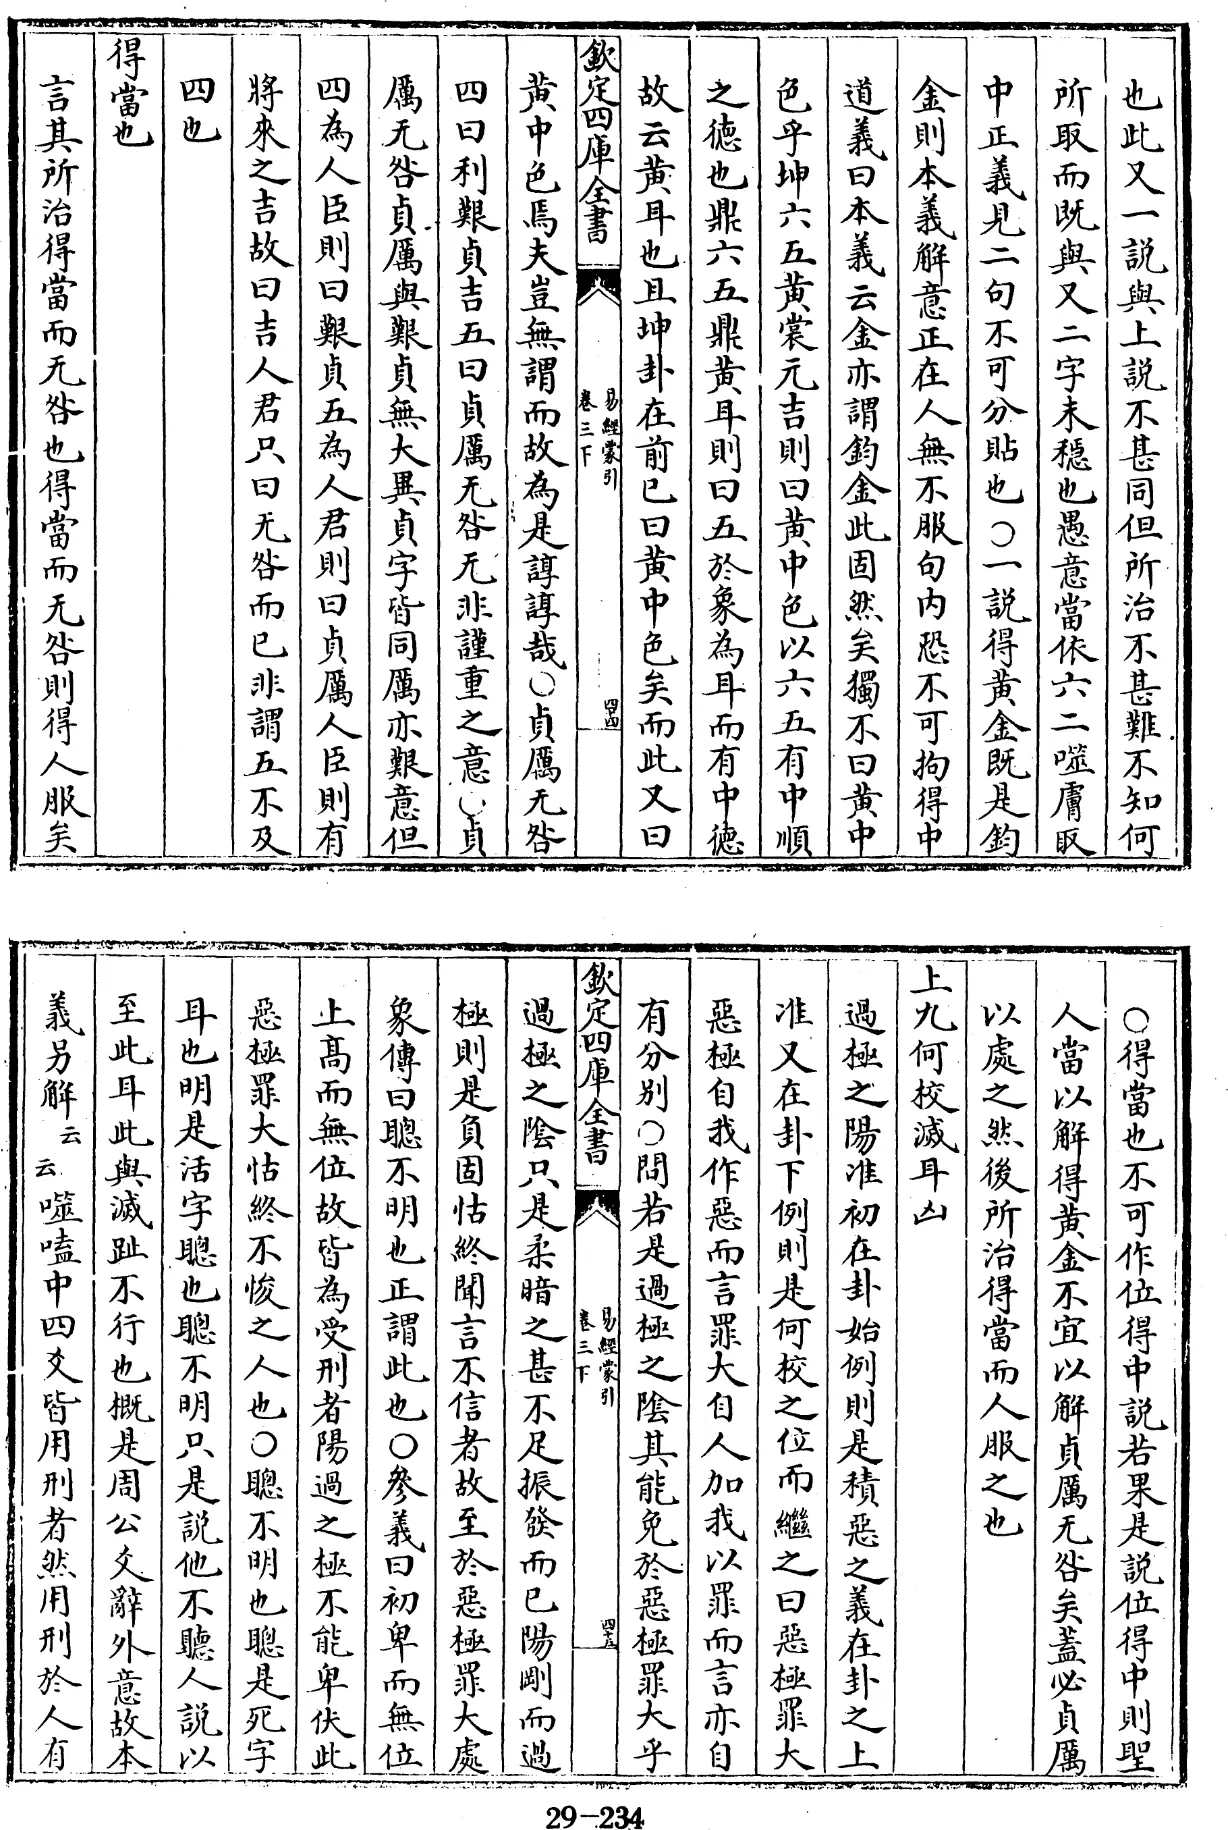 也此又一說與上說不甚同但所治不甚難不知何
所取而既與又二字未穩也愚意當依六二噬膚取
中正義見二句不可分貼也○一說得黃金既是鈞
金則本義解意正在人無不服句内恐不可拘得中
道義曰本義云金亦謂鈞金此固然矣獨不曰黃中
色乎坤六五黃裳元吉則曰黃中色以六五有中順
之德也鼎六五鼎黃耳則曰五於象為耳而有中德
故云黃耳也且坤卦在前已曰黃中色矣而此又曰
欽定四庫全書
易經蒙引
卷三下
四四
黃中色焉夫豈無謂而故為是諄諄哉○貞厲无咎
四曰利艱貞吉五曰貞厲无咎无非謹重之意○貞
厲无咎貞厲與艱貞無大異貞字皆同厲亦艱意但
四為人臣則曰艱貞五為人君則曰貞厲人臣則有
將來之吉故曰吉人君只曰无咎而已非謂五不及
四也
得當也
言其所治得當而无咎也得當而无咎則得人服矣
○得當也不可作位得中說若果是說位得中則聖
人當以解得黃金不宜以解貞厲无咎矣蓋必貞厲
以處之然後所治得當而人服之也
上九何校滅耳凶
過極之陽准初在卦始例則是積惡之義在卦之上
准又在卦下例則是何校之位而繼之曰惡極罪大
惡極自我作惡而言罪大自人加我以罪而言亦自
有分别○問若是過極之陰其能免於惡極罪大乎
欽定四庫全書
易經蒙引
卷三下
四五
過極之陰只是柔暗之甚不足振發而已陽剛而過
極則是負固怙終聞言不信者故至於惡極罪大處
象傳曰聰不明也正謂此也○參義曰初卑而無位
上高而無位故皆為受刑者陽過之極不能卑伏此
惡極罪大怙終不悛之人也○聰不明也聰是死字
耳也明是活字聰也聰不明只是說他不聽人說以
至此耳此與滅趾不行也概是周公爻辭外意故本
義另解云云噬嗑中四爻皆用刑者然用刑於人有
29-234